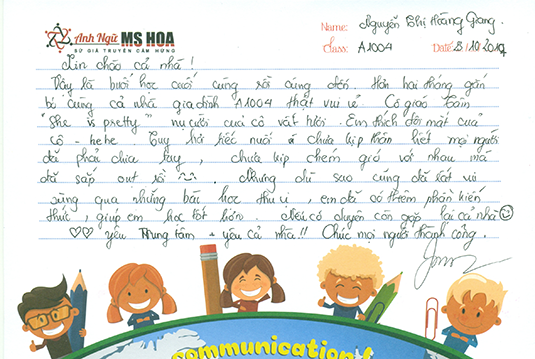 Anh Ngữ MS HOA
SỨ GIẢ TRUYỀN CẢM HỨNG
Name: Nguyễn Thị Hoàng Giang.
Class: A1004 Date: 8/10/2017
Xin chào cả nhà!
Vậy là buổi học cuối cùng rồi cũng đến. Hơn hai tháng gắn
bó cùng cả nhà gia đình A1004 thật vui vẻ. Cô giáo
"She is pretty" nụ cười của cô rất tươi. Em thích đôi mắt của
cô - hehe. Tuy hơi tiếc nuối vì chưa kịp thân hết mọi người
đã phải chia tay, chưa kịp chém gió với nhau mà
đã sắp out rồi. Nhưng dù sao cũng đã rất vui
sướng qua những bài học thú vị, em đã có thêm phần kiến
thức, giúp em học tốt hơn. Nếu có duyên còn gặp lại cả nhà
yêu Trung tâm + yêu cả nhà!! Chúc mọi người thành công.
communication f